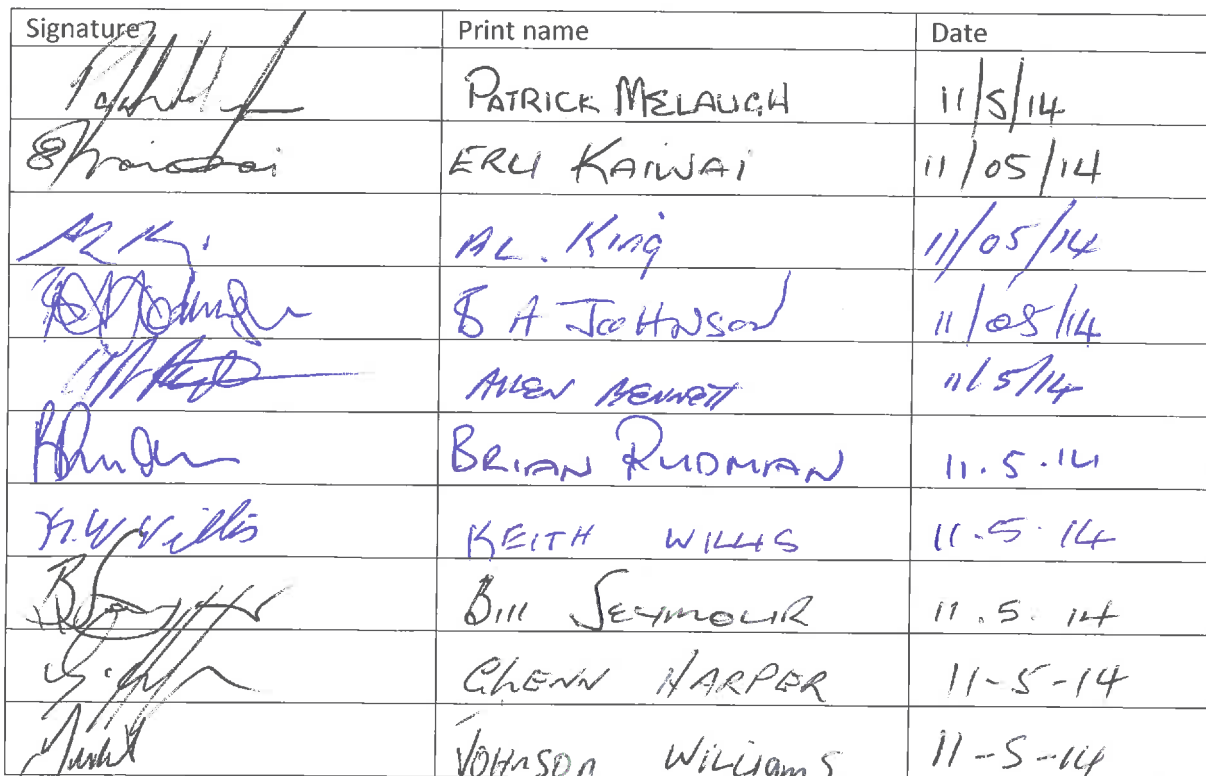 Signature Print name Date
PATRICK MELAUGH 11/5/14
ERU KAIWAI 11/05/14
AL King AL. King 11/05/14
B A JOHNSON 11/05/14
ALLEN BENNETT 11/5/14
BRIAN RUDMAN 11.5.14
K.W Willis KEITH WILLIS 11.5.14
Bill SEYMOUR 11.5.14
GLENN HARPER 11-5-14
JOHNSON WILLIAMS 11-5-14